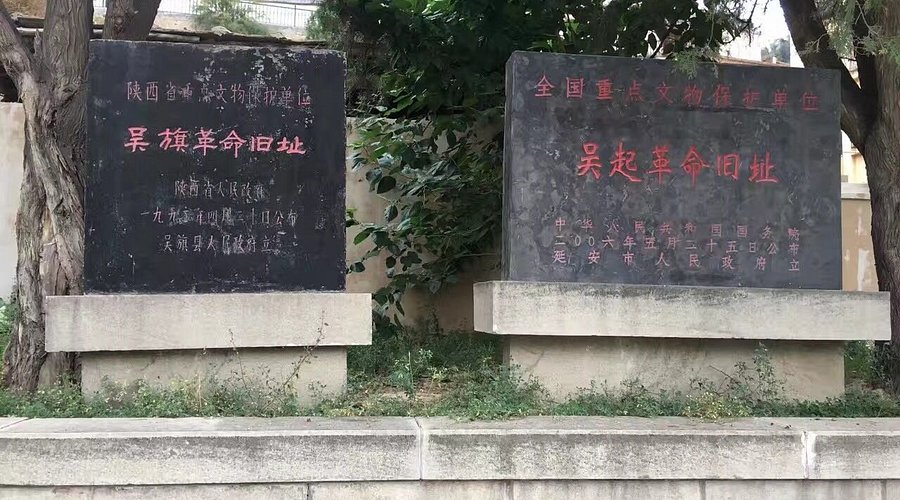 陕西省重点文物保护单位
吴旗革命旧址
陕西省人民政府
一九九二年四月二十日公布
吴旗县人民政府立
全国重点文物保护单位
吴起革命旧址
中华人民共和国国务院
二〇〇六年五月二十五日公布
延安市人民政府立